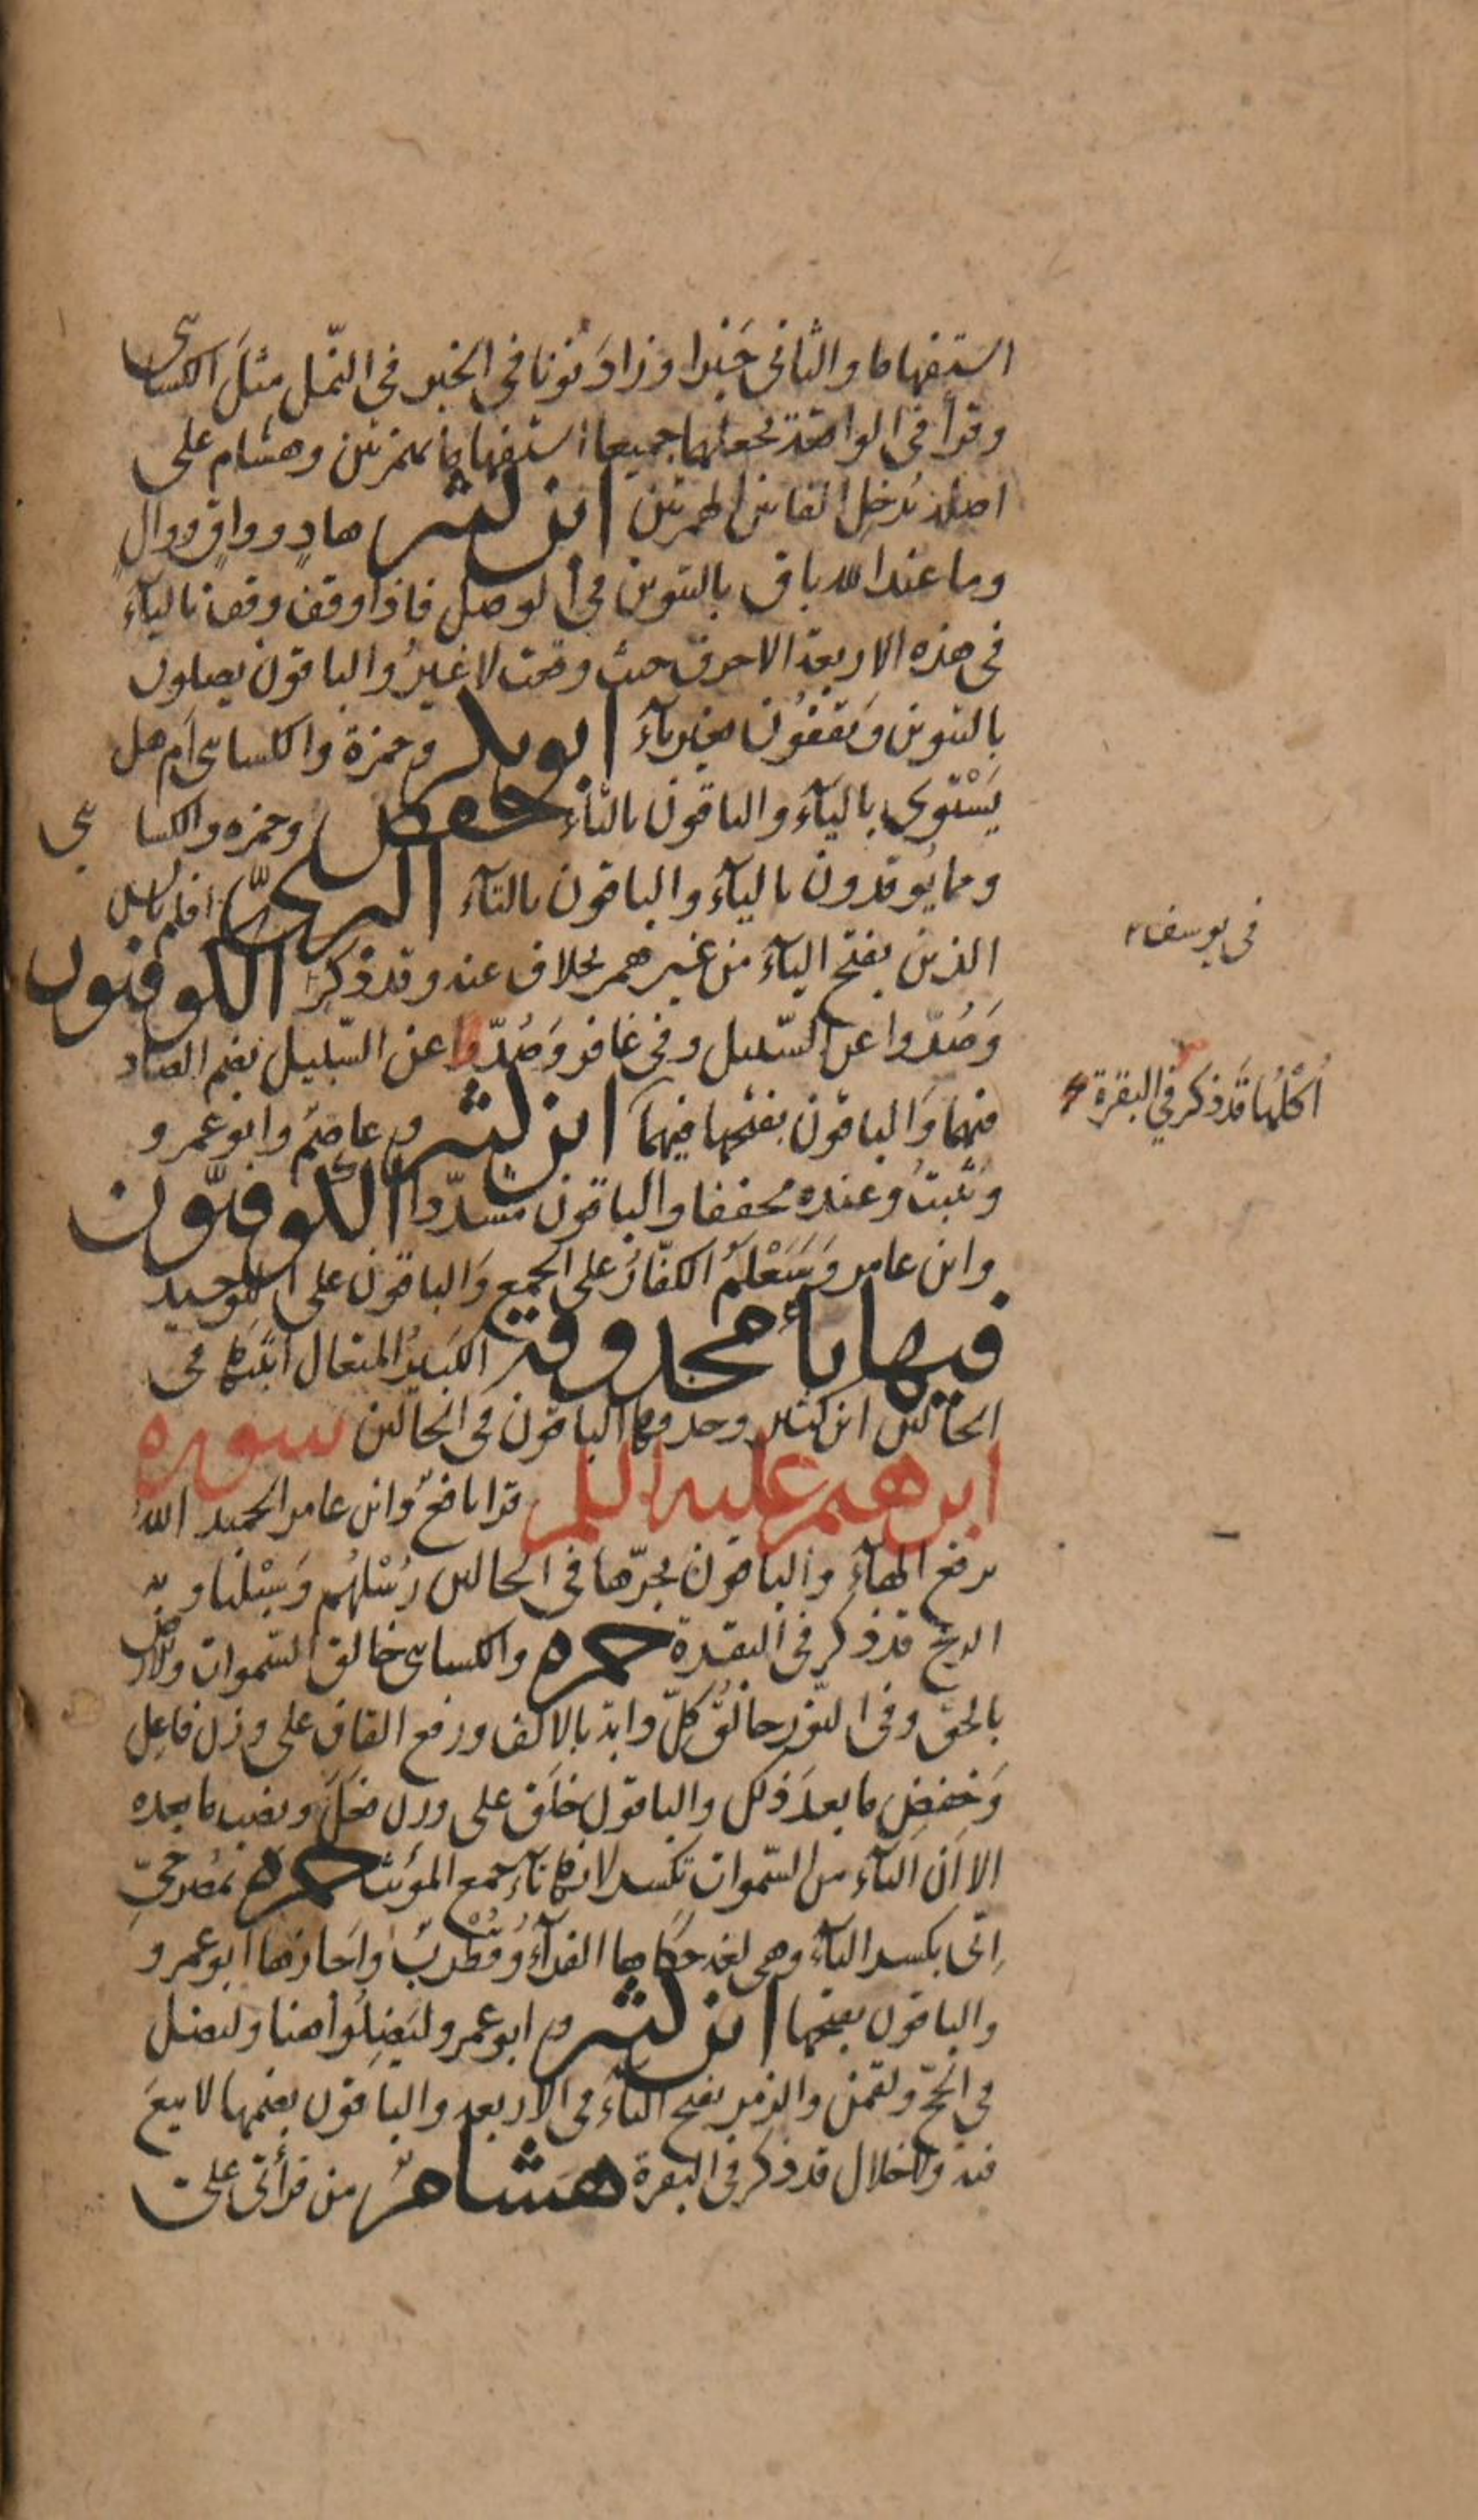 استفهاما والثانى خَبَرا وزادَ نُونا فى الخبر فى النّمل مثلَ الكسائى
وقرأ فى الواقعة بجعلهما جميعا استفهاما بهمزتين وهشام على
اصله يُدخِل الفا بين الهمزتين ابن كثير هادٍ وواقٍ ووالٍ
وما عند الله باق بالتنوين فى الوصل فاذا وقف وقف بالياءِ
فى هذه الاربعة الاحرف حيث وقعت لا غيرُ والباقون يصلون
بالتنوين وَيقفُون بغير ياءَ ابو بكر وحمزة والكسائى اَم هل
يَسْتوى بالياءَ والباقون بالتاءَ حفص وحمزه والكسائى
ومما يُوقدون بالياءَ والباقون بالتاءَ البزىّ افلم يايس
الذين بفتح الياءَ من غير همز بخلاف عنه وقد ذكر الكوفيون
وَصُدّوا عن السّبيل وفى غافر وَصُدّوا عن السّبيل بضم الصاد
فيهما وَالباقون بفتحها فيهما ابن كثير وعاصمٌ وابو عمرو
ويُثبتُ وعنده مخففا والباقون مشدّدا الكوفيّون
وابن عامر وَسَيَعْلمُ الكفّارُ على الجمع وَالباقون على التوحيد
فيها ياءٌ محذوفة الكبيرُ المتعال اثبتها فى
الحالين ابن كثير وحذفها الباقون فى الحالين سورة
ابرهيم عليه السلم قرا نافعٌ وابن عامر الحميد اللهُ
برفع الهاءَ والباقون بجرّها فى الحالين رُسْلهُم وَسُبْلنا وبه
الريح قد ذكر فى البقرة حمزه والكسائى خالق السّموات والارض
بالحق وفى النّور خالقُ كلّ دابة بالالف ورفع القاف على وزن فاعِل
وَخفض ما بعدَ ذلك والباقون خلَق على وزن فعَلَ ونصب ما بعده
الا اَن التاَء من السّموات تكسر لانها تاءَ جمع المؤنث حمزه بمصرخىّ
اِنّى بكسر الياَء وهى لغة حكاها الفرآءُ وَقُطْرُبٌ واَجازها ابو عمرو
والباقون بفتحها ابن كثير وابو عمرو ليَضِلُوا هنا وليضل
فى الحجّ ولقمن والزمر بفتح الياَء فى الاربعه والباقون بضمها لا بيعَ
فيه ولا خلال قد ذكر فى البقرة هشامٌ من قرأتى على
فى يوسف
اُكْلُها قَد ذكر فى البقرة